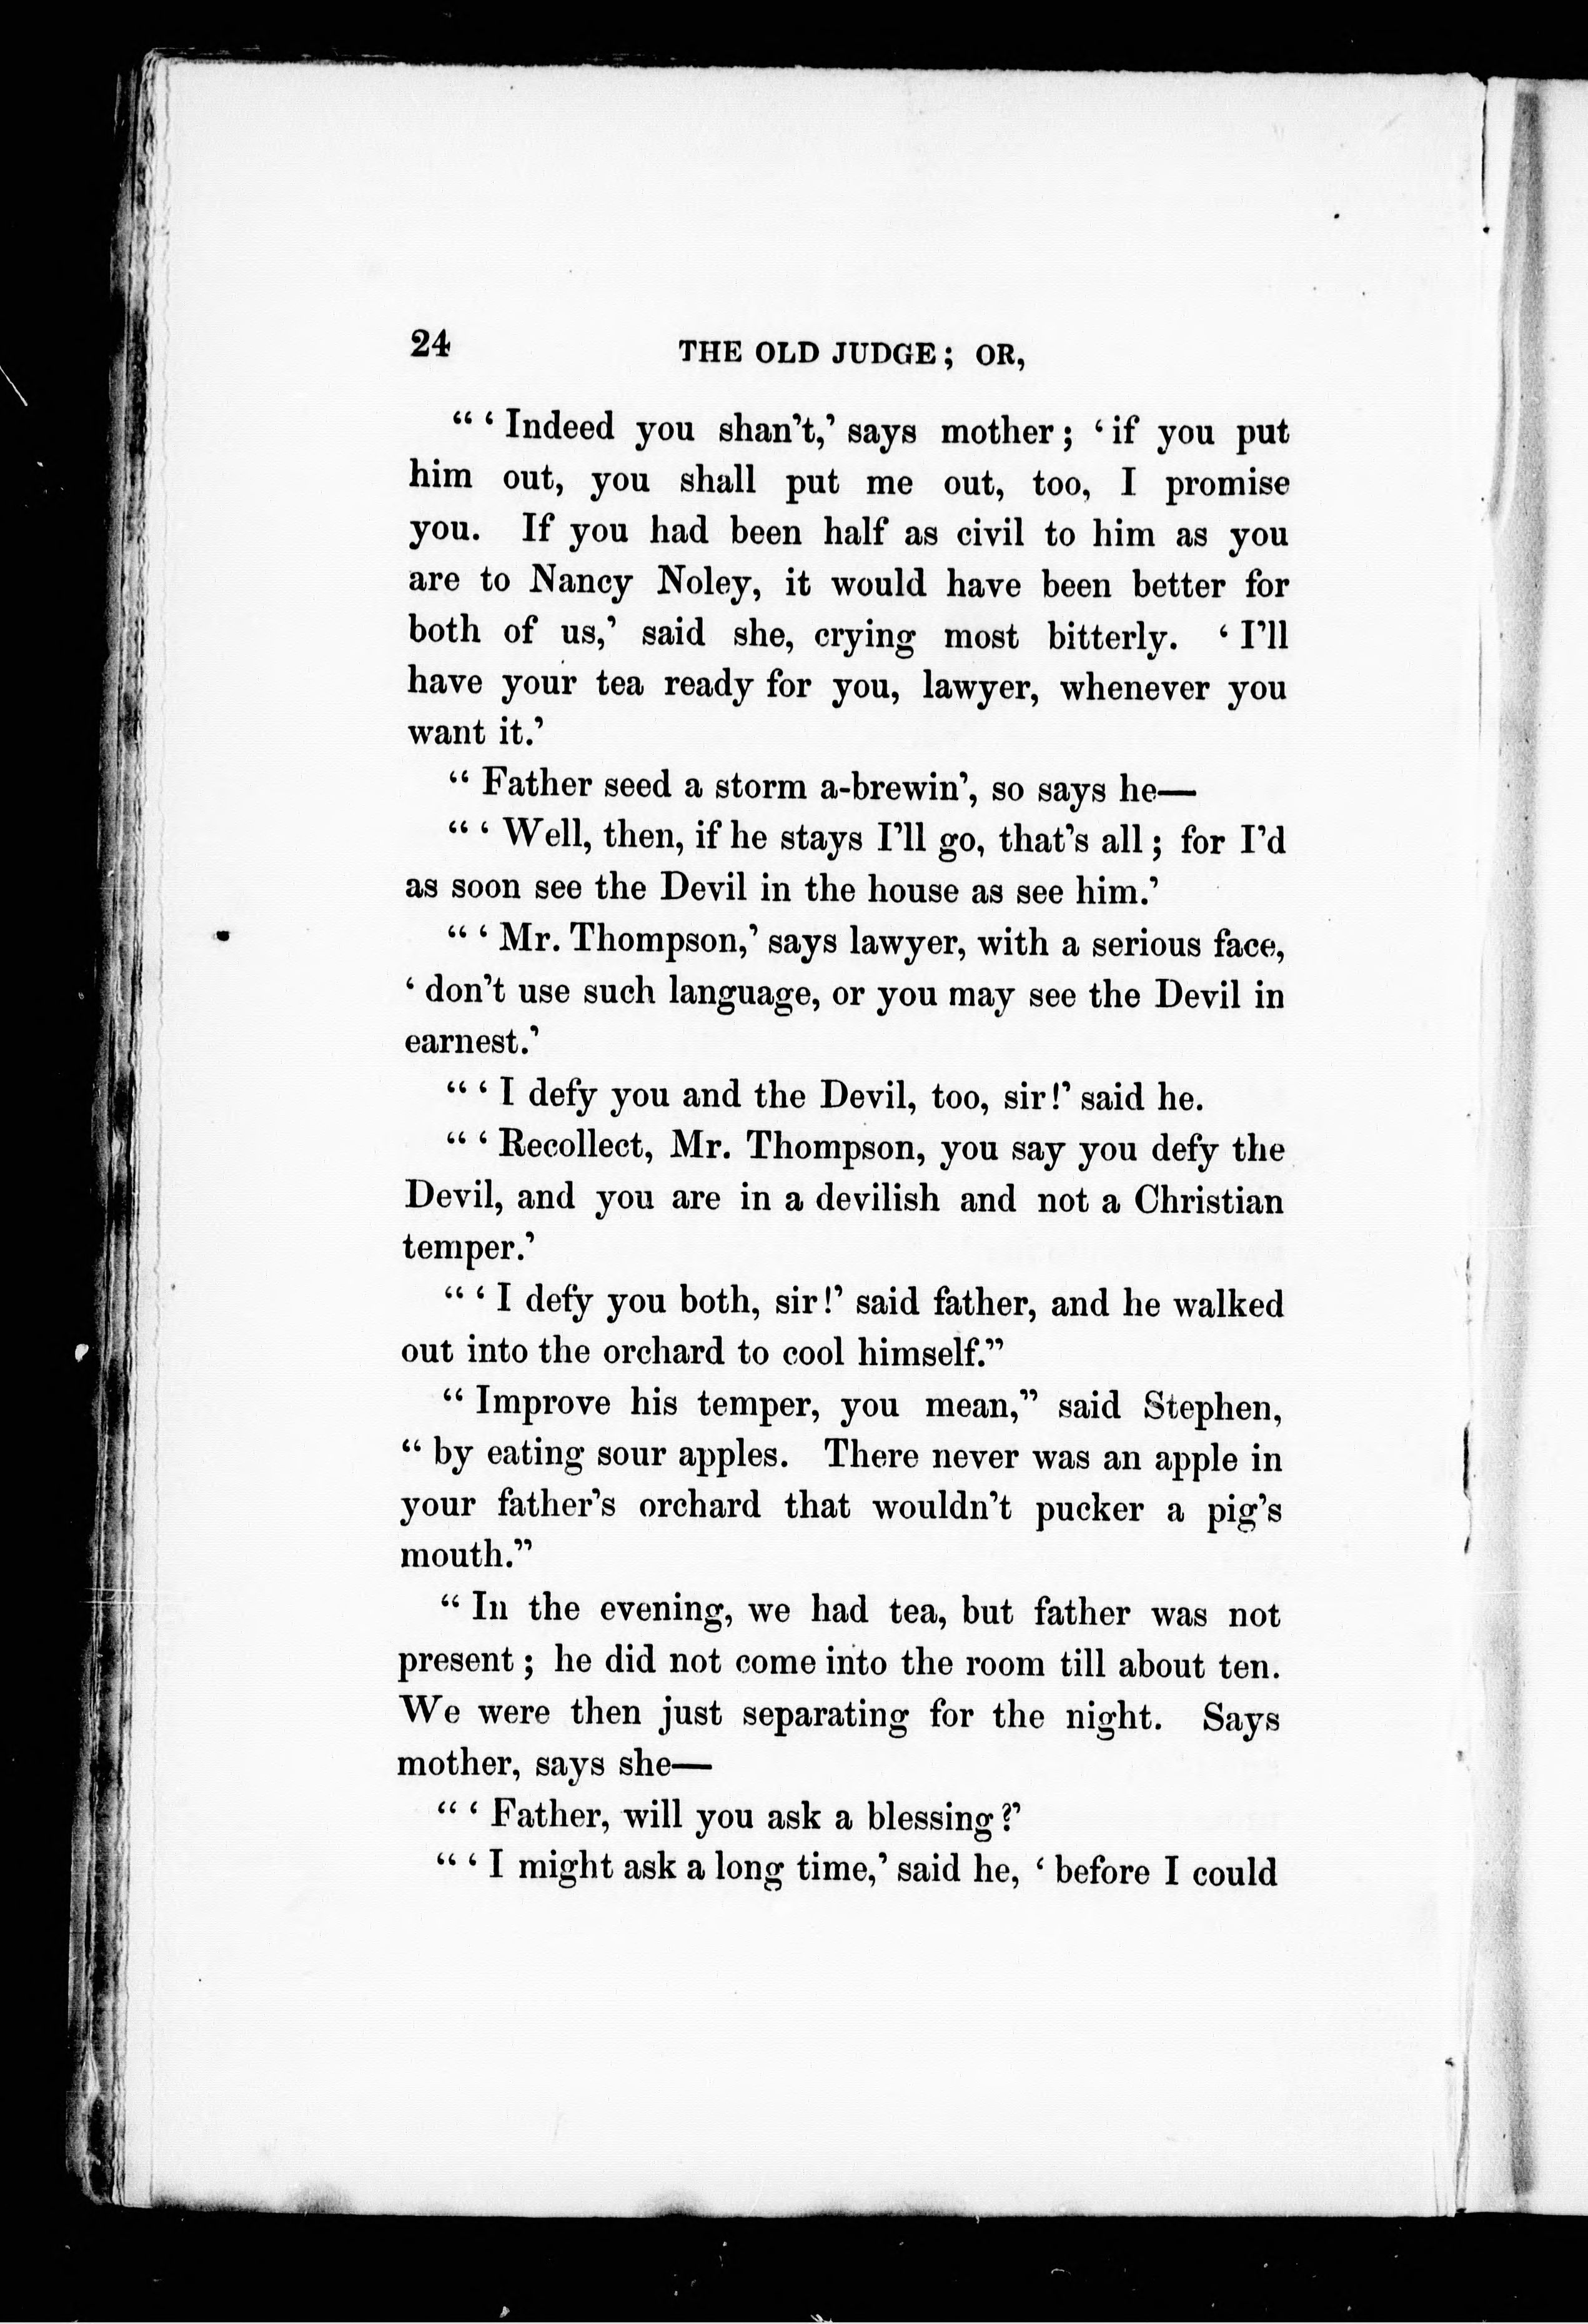 24 THE OLD JUDGE; OR,
“‘Indeed you shan’t,’ says mother; ‘if you put
him out, you shall put me out, too, I promise
you. If you had been half as civil to him as you
are to Nancy Noley, it would have been better for
both of us,’ said she, crying most bitterly. ‘I’ll
have your tea ready for you, lawyer, whenever you
want it.’
“Father seed a storm a-brewin’, so says he—
“‘Well, then, if he stays I’ll go, that’s all; for I’d
as soon see the Devil in the house as see him.’
“‘Mr. Thompson,’ says lawyer, with a serious face,
‘don’t use such language, or you may see the Devil in
earnest.’
“‘I defy you and the Devil, too, sir!’ said he.
“‘Recollect, Mr. Thompson, you say you defy the
Devil, and you are in a devilish and not a Christian
temper.’
“‘I defy you both, sir!’ said father, and he walked
out into the orchard to cool himself.”
“Improve his temper, you mean,” said Stephen,
“by eating sour apples. There never was an apple in
your father’s orchard that wouldn’t pucker a pig’s
mouth.”
“In the evening, we had tea, but father was not
present; he did not come into the room till about ten.
We were then just separating for the night. Says
mother, says she—
“‘Father, will you ask a blessing?’
“‘I might ask a long time,’ said he, ‘before I could